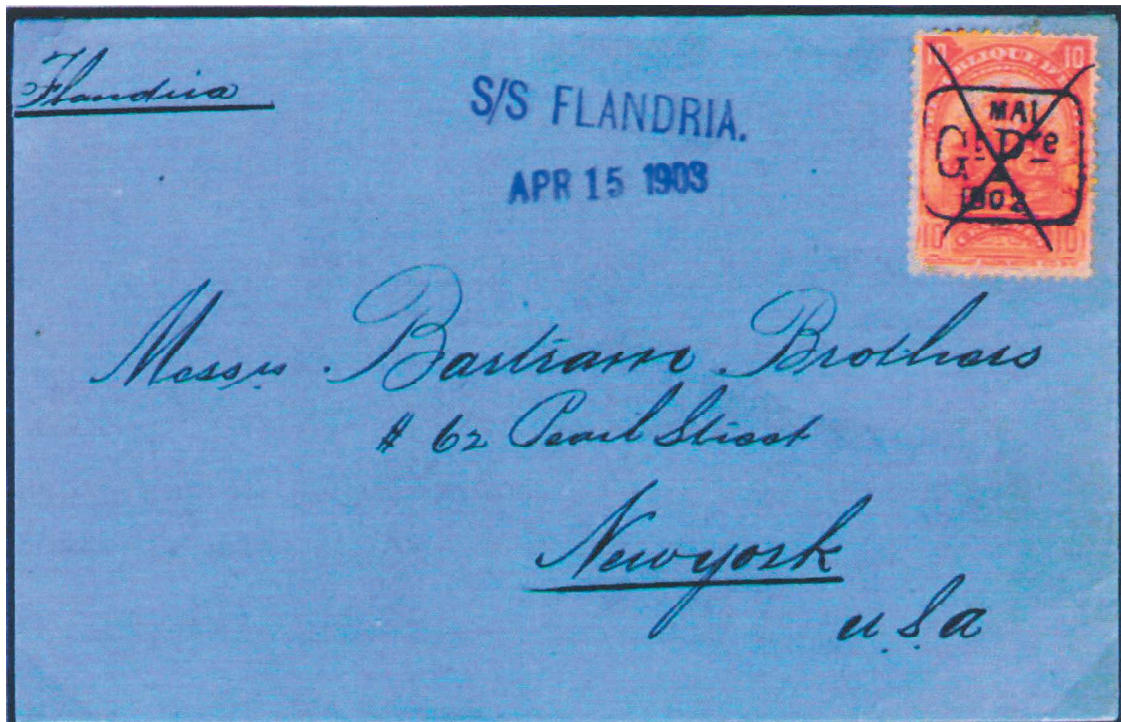 Flandria
S/S FLANDRIA.
APR 15 1903
10 BLIQUE D 10
MAI
Gt Pre
1902
10 10
Messrs Bartram Brothers
# 62 Pearl Street
Newyork
U.S.a